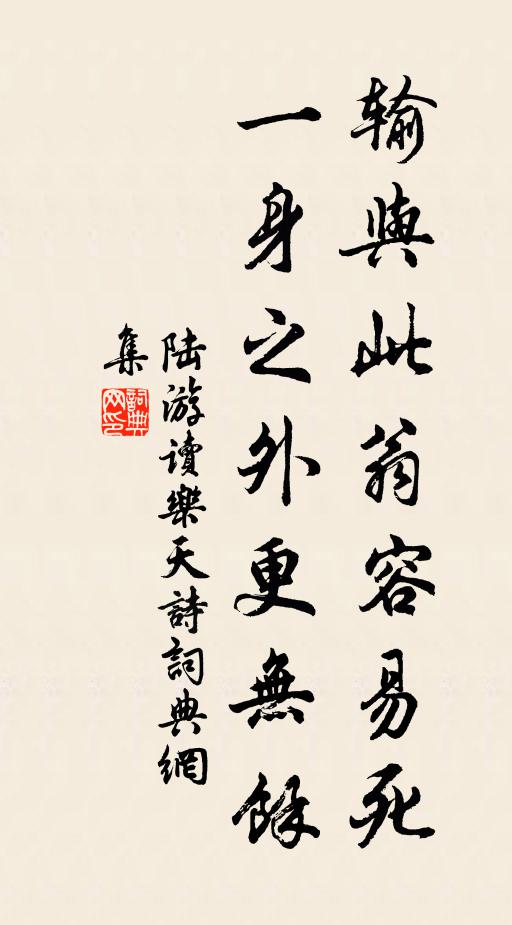 輸與此翁容易死
一身之外更無餘
陸游讀樂天詩詞典網
集
詞典
网印